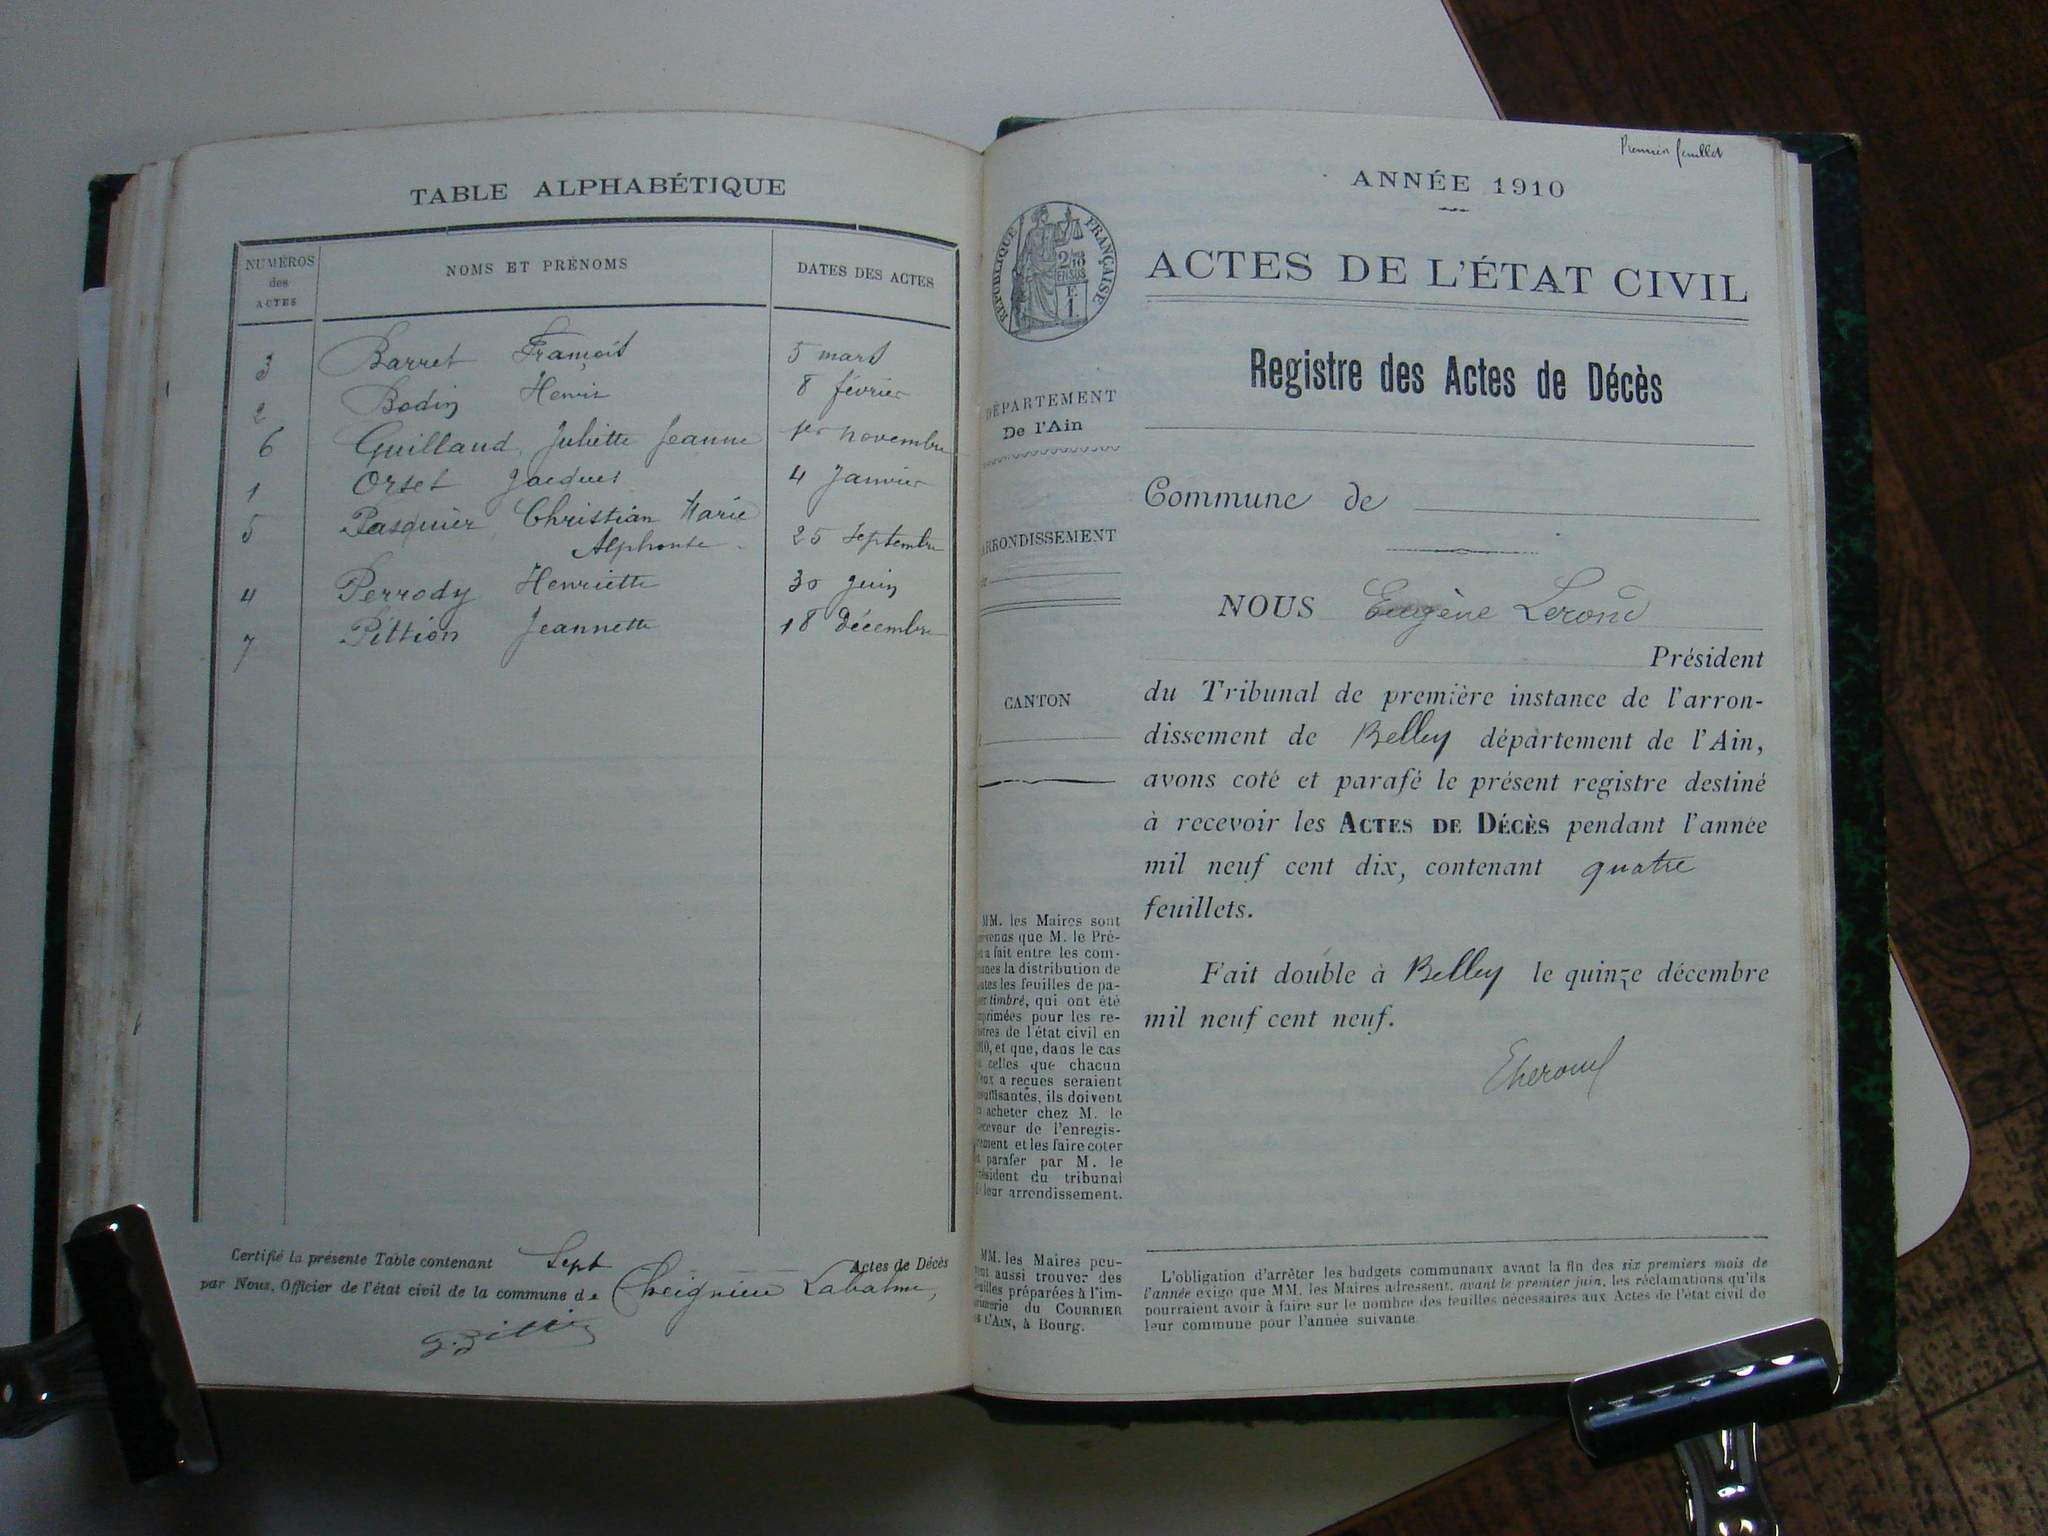 TABLE ALPHABÉTIQUE
NUMÉROS
des
ACTES
NOMS ET PRÉNOMS
DATES DES ACTES
3 Barret François 5 mars
2 Bodin Henri 8 février
6 Guilland Juliette Jeanne 1er novembre
1 Orset Jacques 4 Janvier
5 Pasquier Christian Marie
Alphonse 25 septembre
4 Perrody Henriette 30 juin
7 Pittion Jeannette 18 décembre
Certifié la présente Table contenant Sept Actes de Décès
par Nous, Officier de l'état civil de la commune de Cheignieu Labalme,
Premier feuillet
ANNÉE 1910
RÉPUBLIQUE FRANÇAISE
ACTES DE L'ÉTAT CIVIL
Registre des Actes de Décès
DÉPARTEMENT
De l'Ain
ARRONDISSEMENT
CANTON
Commune de
NOUS Eugène Lerond
Président
du Tribunal de première instance de l'arron-
dissement de Belley département de l'Ain,
avons coté et parafé le présent registre destiné
à recevoir les ACTES DE DÉCÈS pendant l'année
mil neuf cent dix, contenant quatre
feuillets.
Fait double à Belley le quinze décembre
mil neuf cent neuf.
MM. les Maires sont
que M. le Pré-
a fait entre les com-
la distribution de
les feuilles de pa-
timbré, qui ont été
pour les re-
de l'état civil en
et que, dans le cas
celles que chacun
a reçues seraient
ils doivent
acheter chez M. le
de l'enregis-
et les faire coter
parafer par M. le
du tribunal
leur arrondissement.
MM. les Maires peu-
aussi trouver des
préparées à l'im-
du COURRIER
L'AIN, à Bourg.
L'obligation d'arrêter les budgets communaux avant la fin des six premiers mois de
l'année exige que MM. les Maires adressent, avant le premier juin, les réclamations qu'ils
pourraient avoir à faire sur le nombre des feuilles nécessaires aux Actes de l'état civil de
leur commune pour l'année suivante